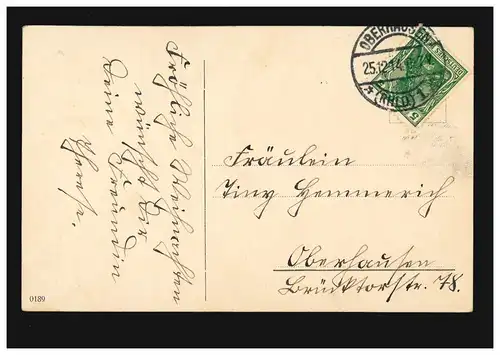 Fröhliche Weihnachten
wünscht Dir
Deine Freundin
Therese.
OBERHAUSEN
25.12.14
* (RHLD) 1
Fräulein
Tiny Hemmerich
Oberhausen
Brücktorstr. 78.
0189